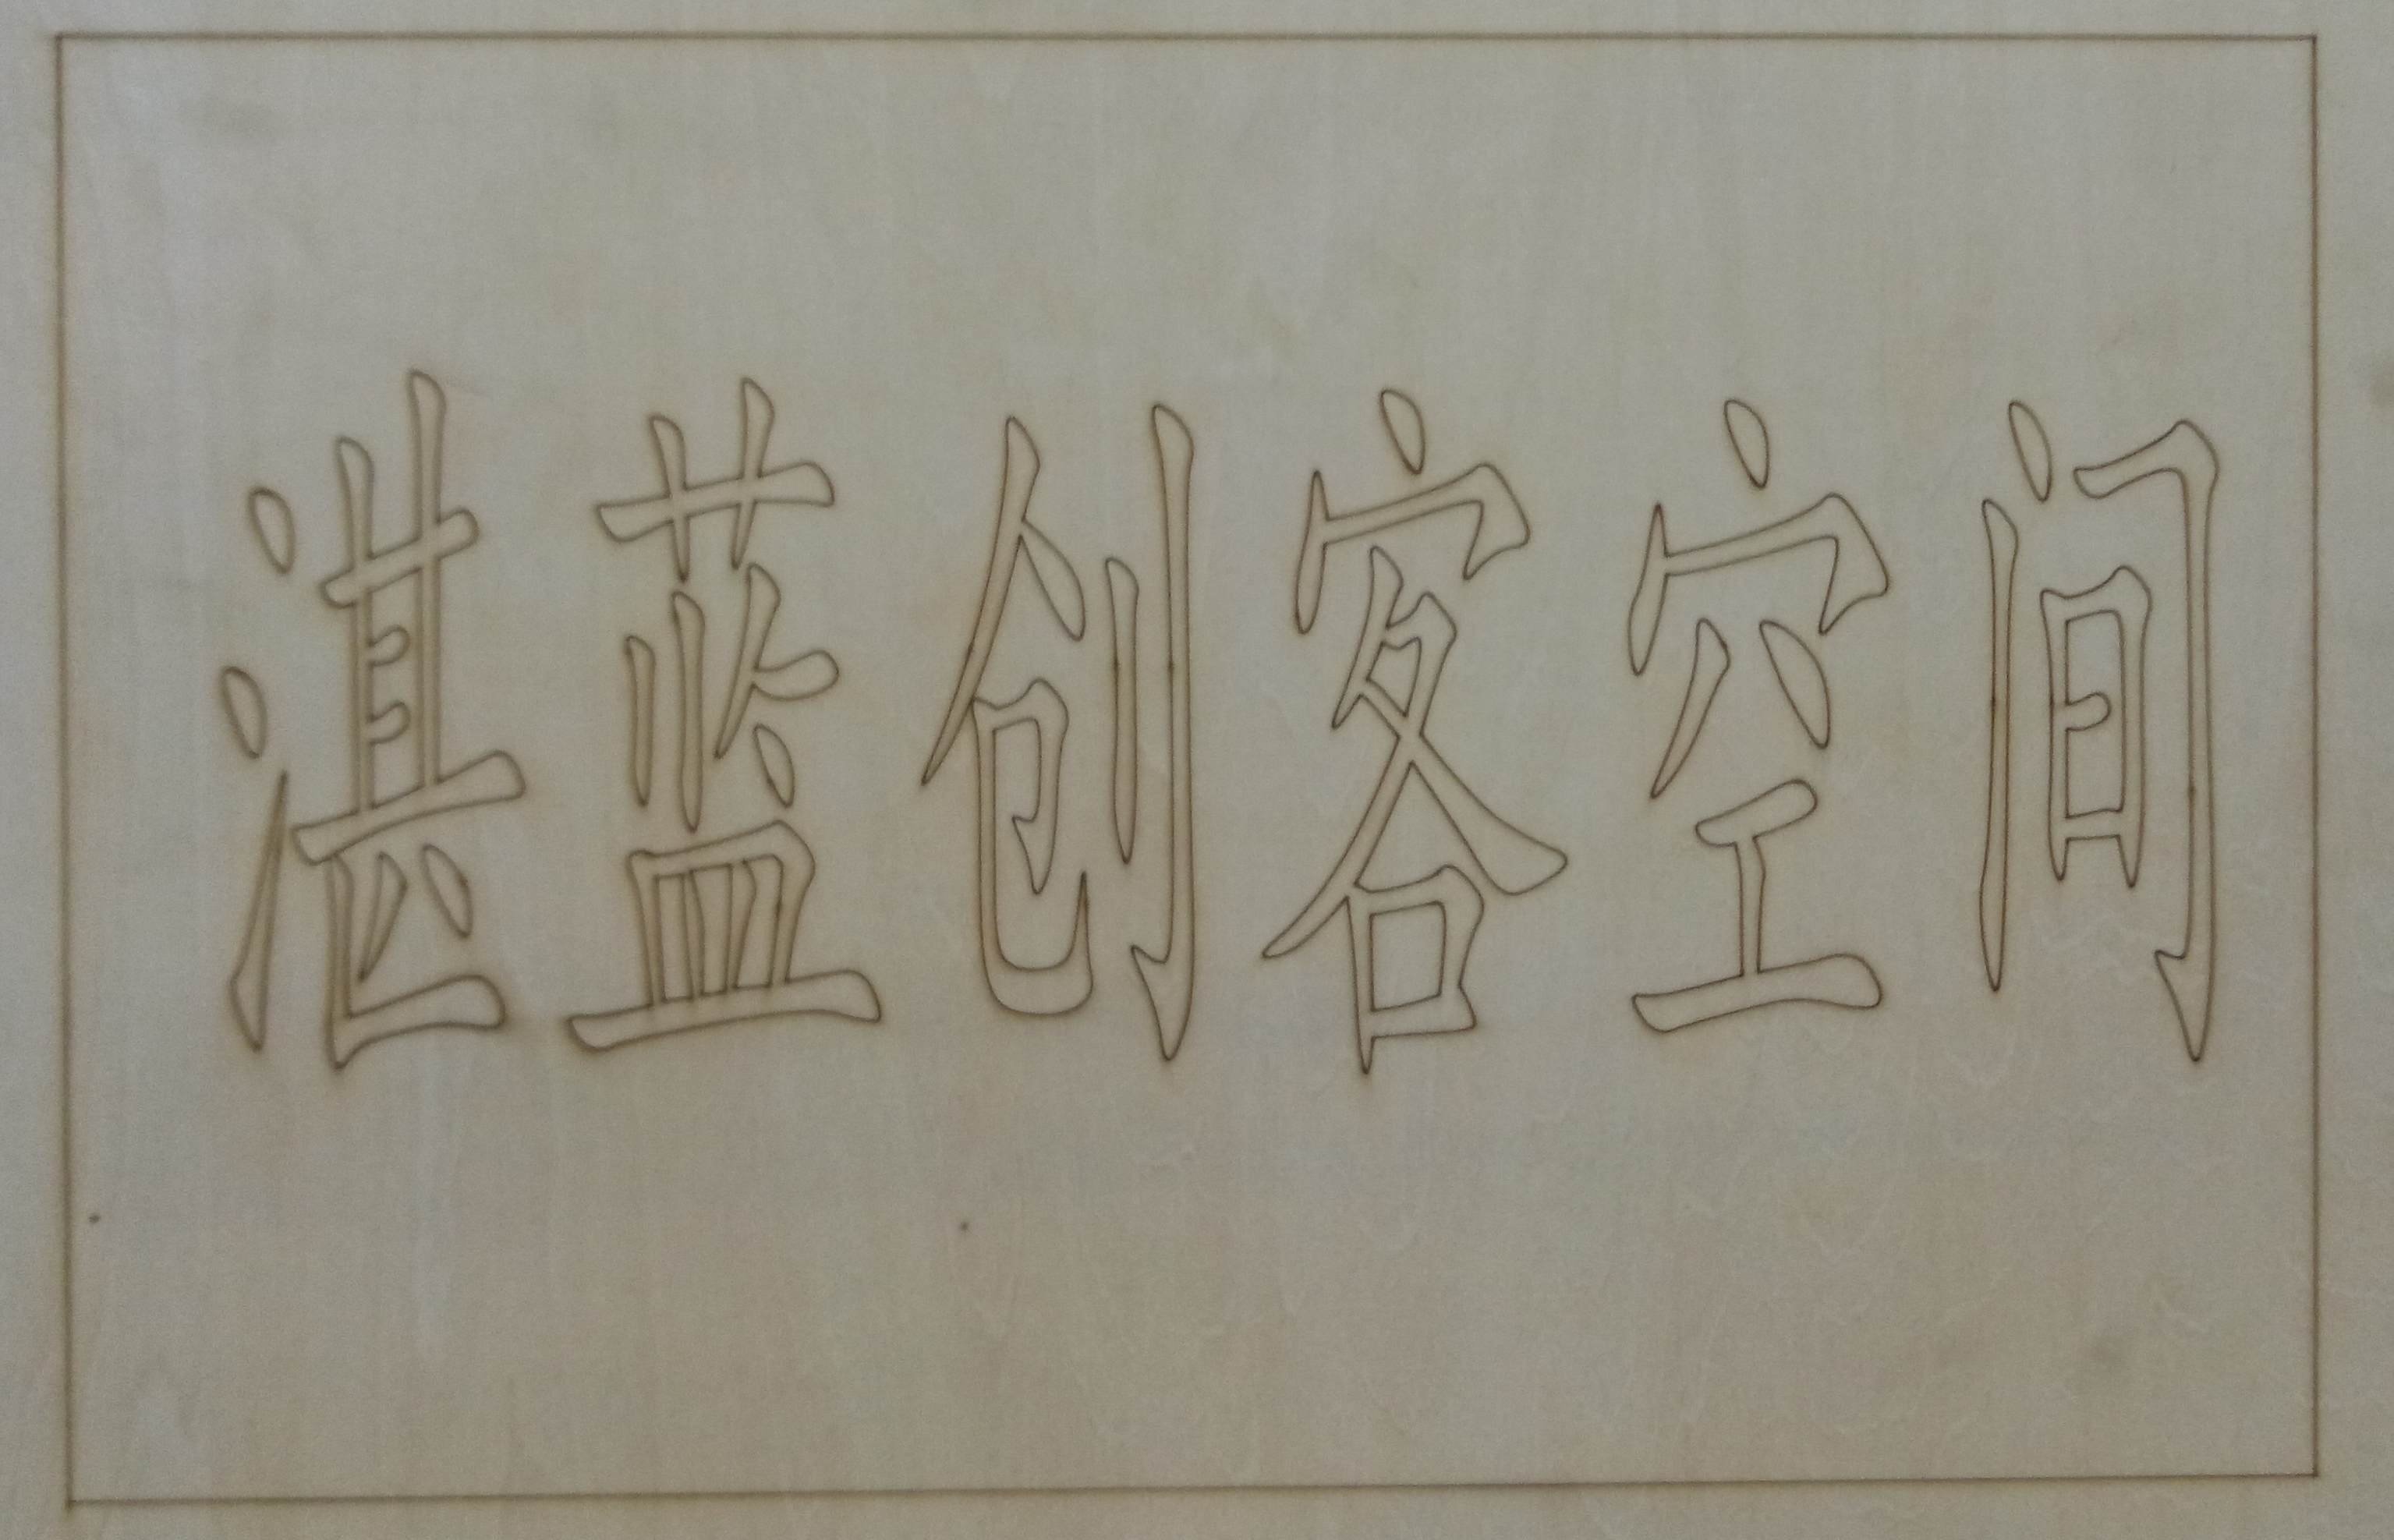 湛蓝创客空间